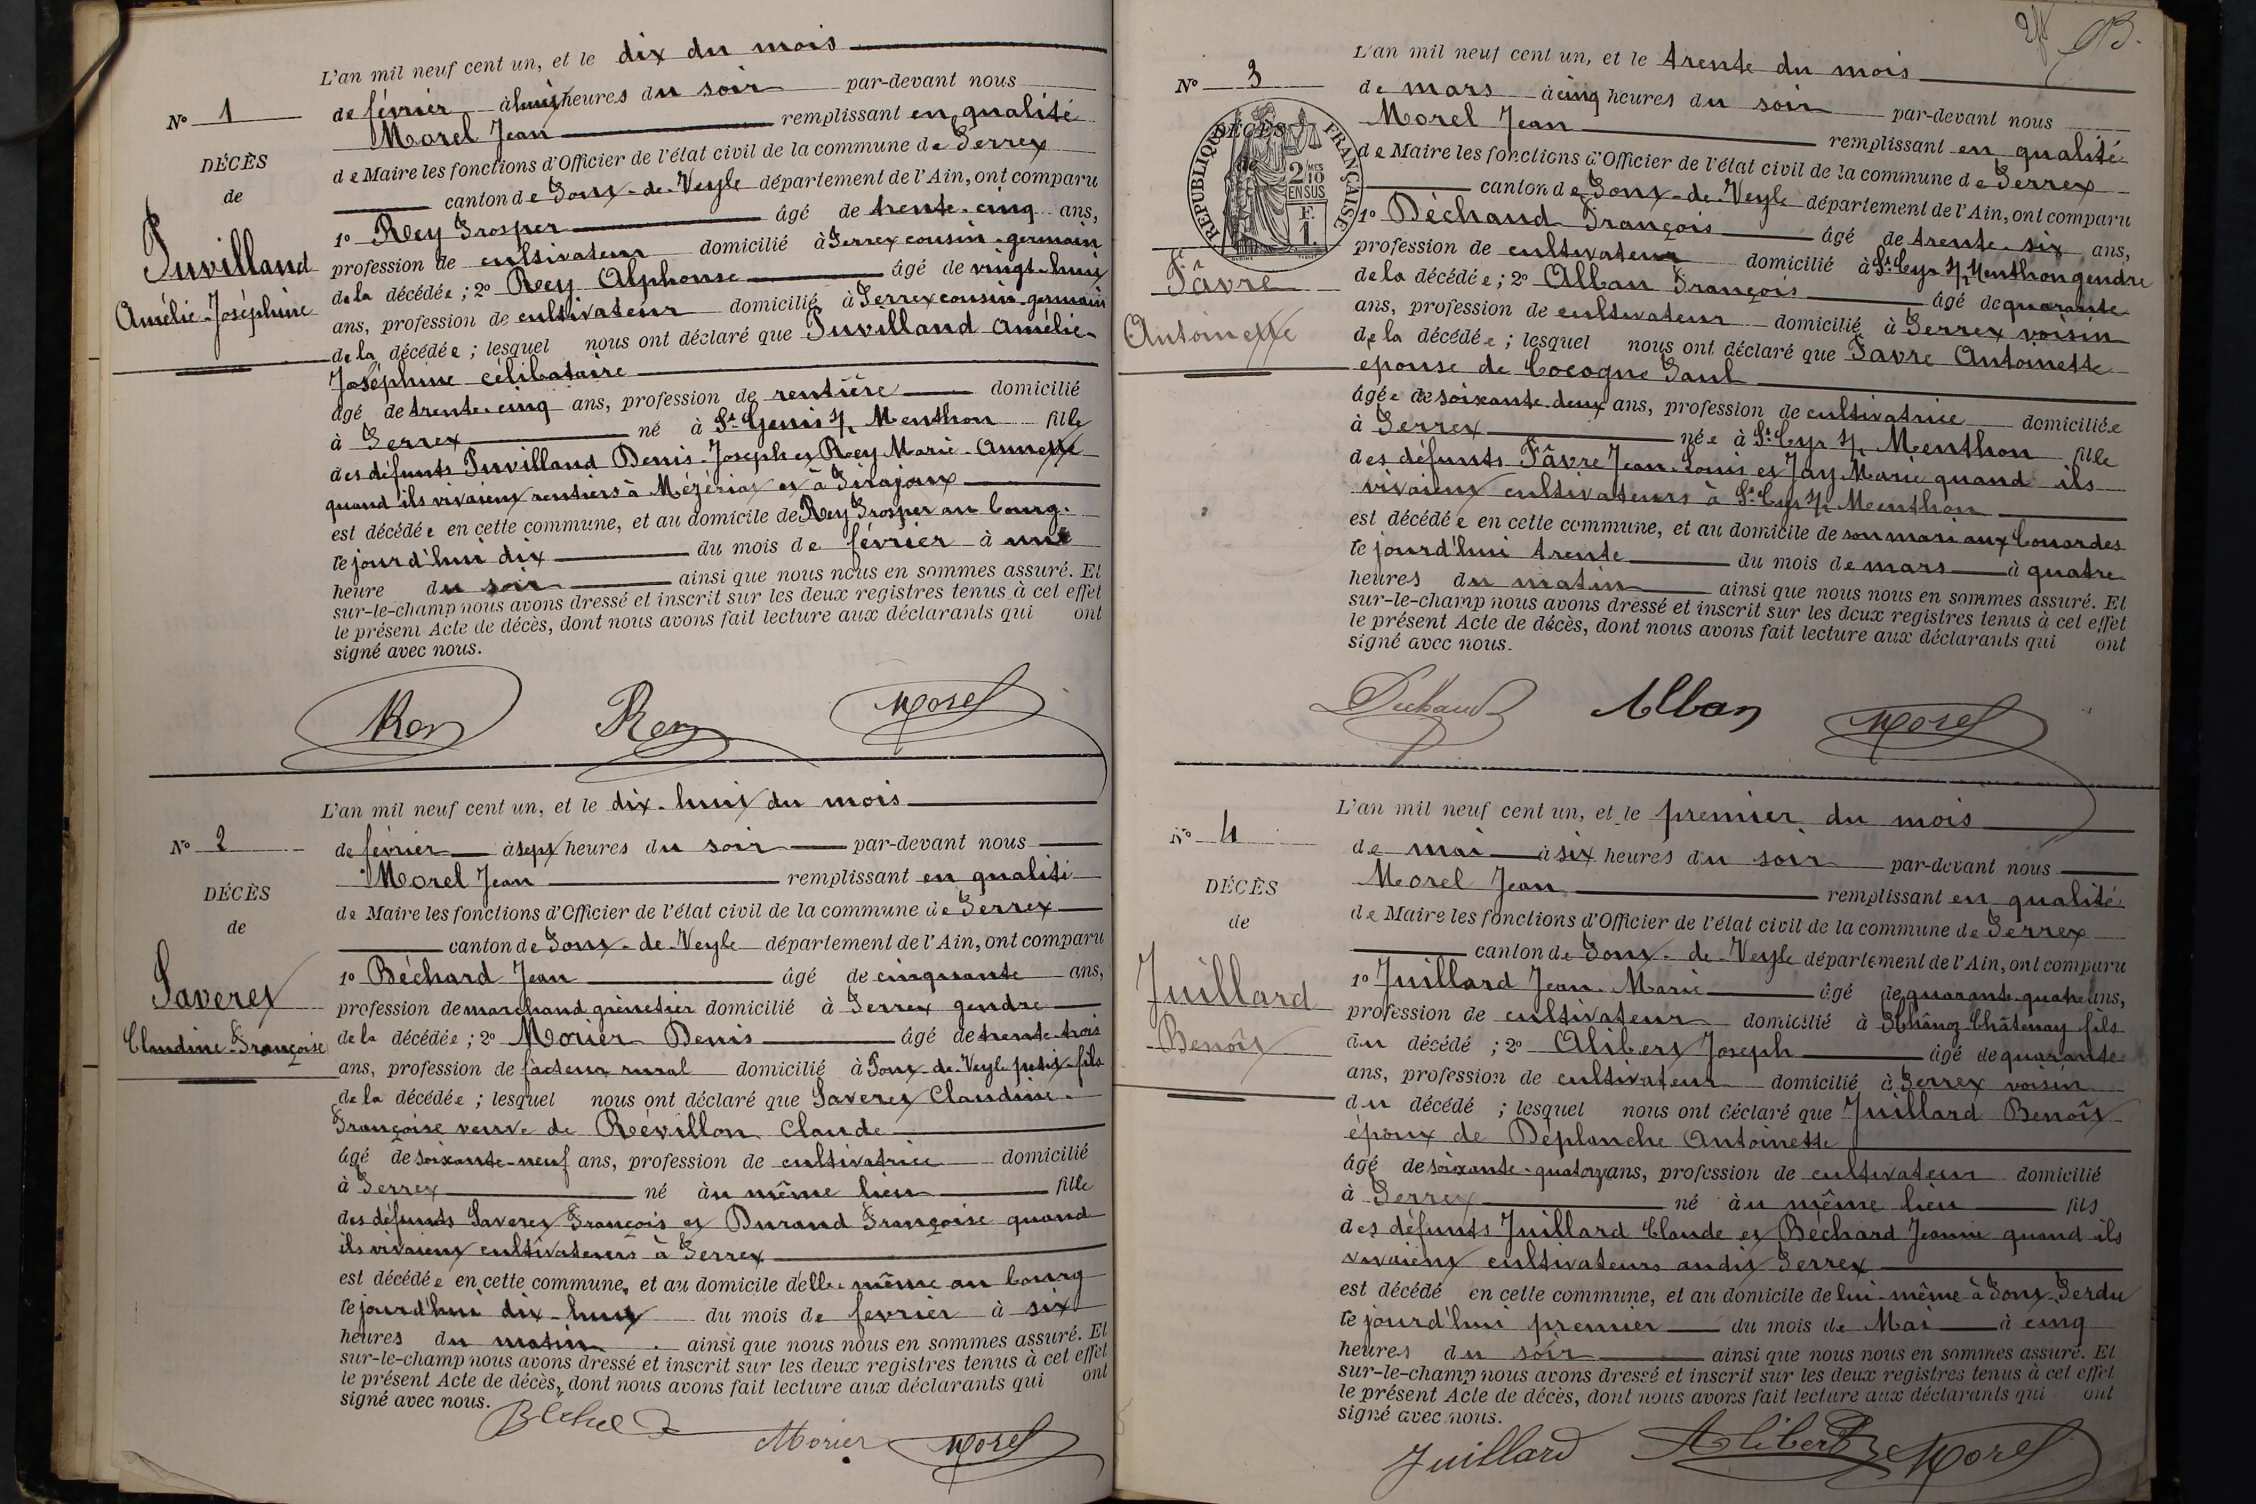 L'an mil neuf cent un, et le dix du mois
N° 1
de février à huit heures du soir par-devant nous
Morel Jean remplissant en qualité
DÉCÈS
de Maire les fonctions d'Officier de l'état civil de la commune de Perrex
de
canton de Pont-de-Veyle département de l'Ain, ont comparu
1° Rey Prosper âgé de trente-cinq ans,
Puvilland
profession de cultivateur domicilié à Perrex cousin-germain
de la décédée ; 2° Rey Alphonse âgé de vingt-huit
Amélie-Joséphine
ans, profession de cultivateur domicilié à Perrex cousin-germain
de la décédée ; lesquel nous ont déclaré que Puvilland Amélie-
Joséphine célibataire
âgé de trente-cinq ans, profession de rentière domicilié
à Perrex né à St Genis s/ Menthon fille
des défunts Puvilland Denis-Joseph et Rey Marie-Annette
quand ils vivaient rentiers à Mézériat et à Pirajoux
est décédée en cette commune, et au domicile de Rey Prosper au bourg.
cejourd'hui dix du mois de février à une
heure du soir ainsi que nous nous en sommes assuré. Et
sur-le-champ nous avons dressé et inscrit sur les deux registres tenus à cet effet
le présent Acte de décès, dont nous avons fait lecture aux déclarants qui ont
signé avec nous.
Rey Rey Morel
L'an mil neuf cent un, et le dix-huit du mois
N° 2
de février à sept heures du soir par-devant nous
Morel Jean remplissant en qualité
DÉCÈS
de Maire les fonctions d'Officier de l'état civil de la commune de Perrex
de
canton de Pont-de-Veyle département de l'Ain, ont comparu
1° Béchard Jean âgé de cinquante ans,
Saveret
profession de marchand grènetier domicilié à Perrex gendre
Claudine-Françoise
de la décédée ; 2° Morier Denis âgé de trente-trois
ans, profession de facteur rural domicilié à Pont-de-Veyle petit-fils
de la décédée ; lesquel nous ont déclaré que Saveret Claudine-
Françoise veuve de Révillon Claude
âgé de soixante-neuf ans, profession de cultivatrice domicilié
à Perrex né àu même lieu fille
des défunts Saveret François et Durand Françoise quand
ils vivaient cultivateurs à Perrex
est décédée en cette commune, et au domicile d'elle-même au bourg
cejourd'hui dix-huit du mois de fevrier à six
heures du matin ainsi que nous nous en sommes assuré. Et
sur-le-champ nous avons dressé et inscrit sur les deux registres tenus à cet effet
le présent Acte de décès, dont nous avons fait lecture aux déclarants qui ont
signé avec nous.
Béchard Morier Morel
L'an mil neuf cent un, et le trente du mois
N° 3
de mars à cinq heures du soir par-devant nous
Morel Jean remplissant en qualité
DÉCÈS
de
RÉPUBLIQUE FRANÇAISE
2/10 EN SUS
F. 1.
de Maire les fonctions d'Officier de l'état civil de la commune de Perrex
canton de Pont-de-Veyle département de l'Ain, ont comparu
1° Déchaud François âgé de trente-six ans,
profession de cultivateur domicilié à St Cyr s/ Menthon gendre
Fâvre
de la décédée ; 2° Alban François âgé de quarante
ans, profession de cultivateur domicilié à Perrex voisin
Antoinette
de la décédée ; lesquel nous ont déclaré que Favre Antoinette
epouse de Cocogne Paul
âgée de soixante-deux ans, profession de cultivatrice domiciliée
à Perrex née à St Cyr s/ Menthon fille
des défunts Fâvre Jean-Louis et Jay Marie quand ils
vivaient cultivateurs à St Cyr s/ Menthon
est décédée en cette commune, et au domicile de son mari aux Couardes
cejourd'hui trente du mois de mars à quatre
heures du matin ainsi que nous nous en sommes assuré. Et
sur-le-champ nous avons dressé et inscrit sur les deux registres tenus à cet effet
le présent Acte de décès, dont nous avons fait lecture aux déclarants qui ont
signé avec nous.
Déchaud Alban Morel
L'an mil neuf cent un, et le premier du mois
N° 4
de mai à six heures du soir par-devant nous
Morel Jean remplissant en qualité
DÉCÈS
de Maire les fonctions d'Officier de l'état civil de la commune de Perrex
de
canton de Pont-de-Veyle département de l'Ain, ont comparu
1° Juillard Jean-Marie âgé de quarante-quatre ans,
Juillard
profession de cultivateur domicilié à Châtenay fils
Benoît
du décédé ; 2° Alibert Joseph âgé de quarante
ans, profession de cultivateur domicilié à Perrex voisin
du décédé ; lesquel nous ont déclaré que Juillard Benoît
epoux de Déplanche Antoinette
âgé de soixante-quatorze ans, profession de cultivateur domicilié
à Perrex né àu même lieu fils
des défunts Juillard Claude et Béchard Jeanne quand ils
vivaient cultivateurs audit Perrex
est décédé en cette commune, et au domicile de lui-même à Pont-Perdu
cejourd'hui premier du mois de Mai à cinq
heures du soir ainsi que nous nous en sommes assuré. Et
sur-le-champ nous avons dressé et inscrit sur les deux registres tenus à cet effet
le présent Acte de décès, dont nous avons fait lecture aux déclarants qui ont
signé avec nous.
Juillard Alibert Morel